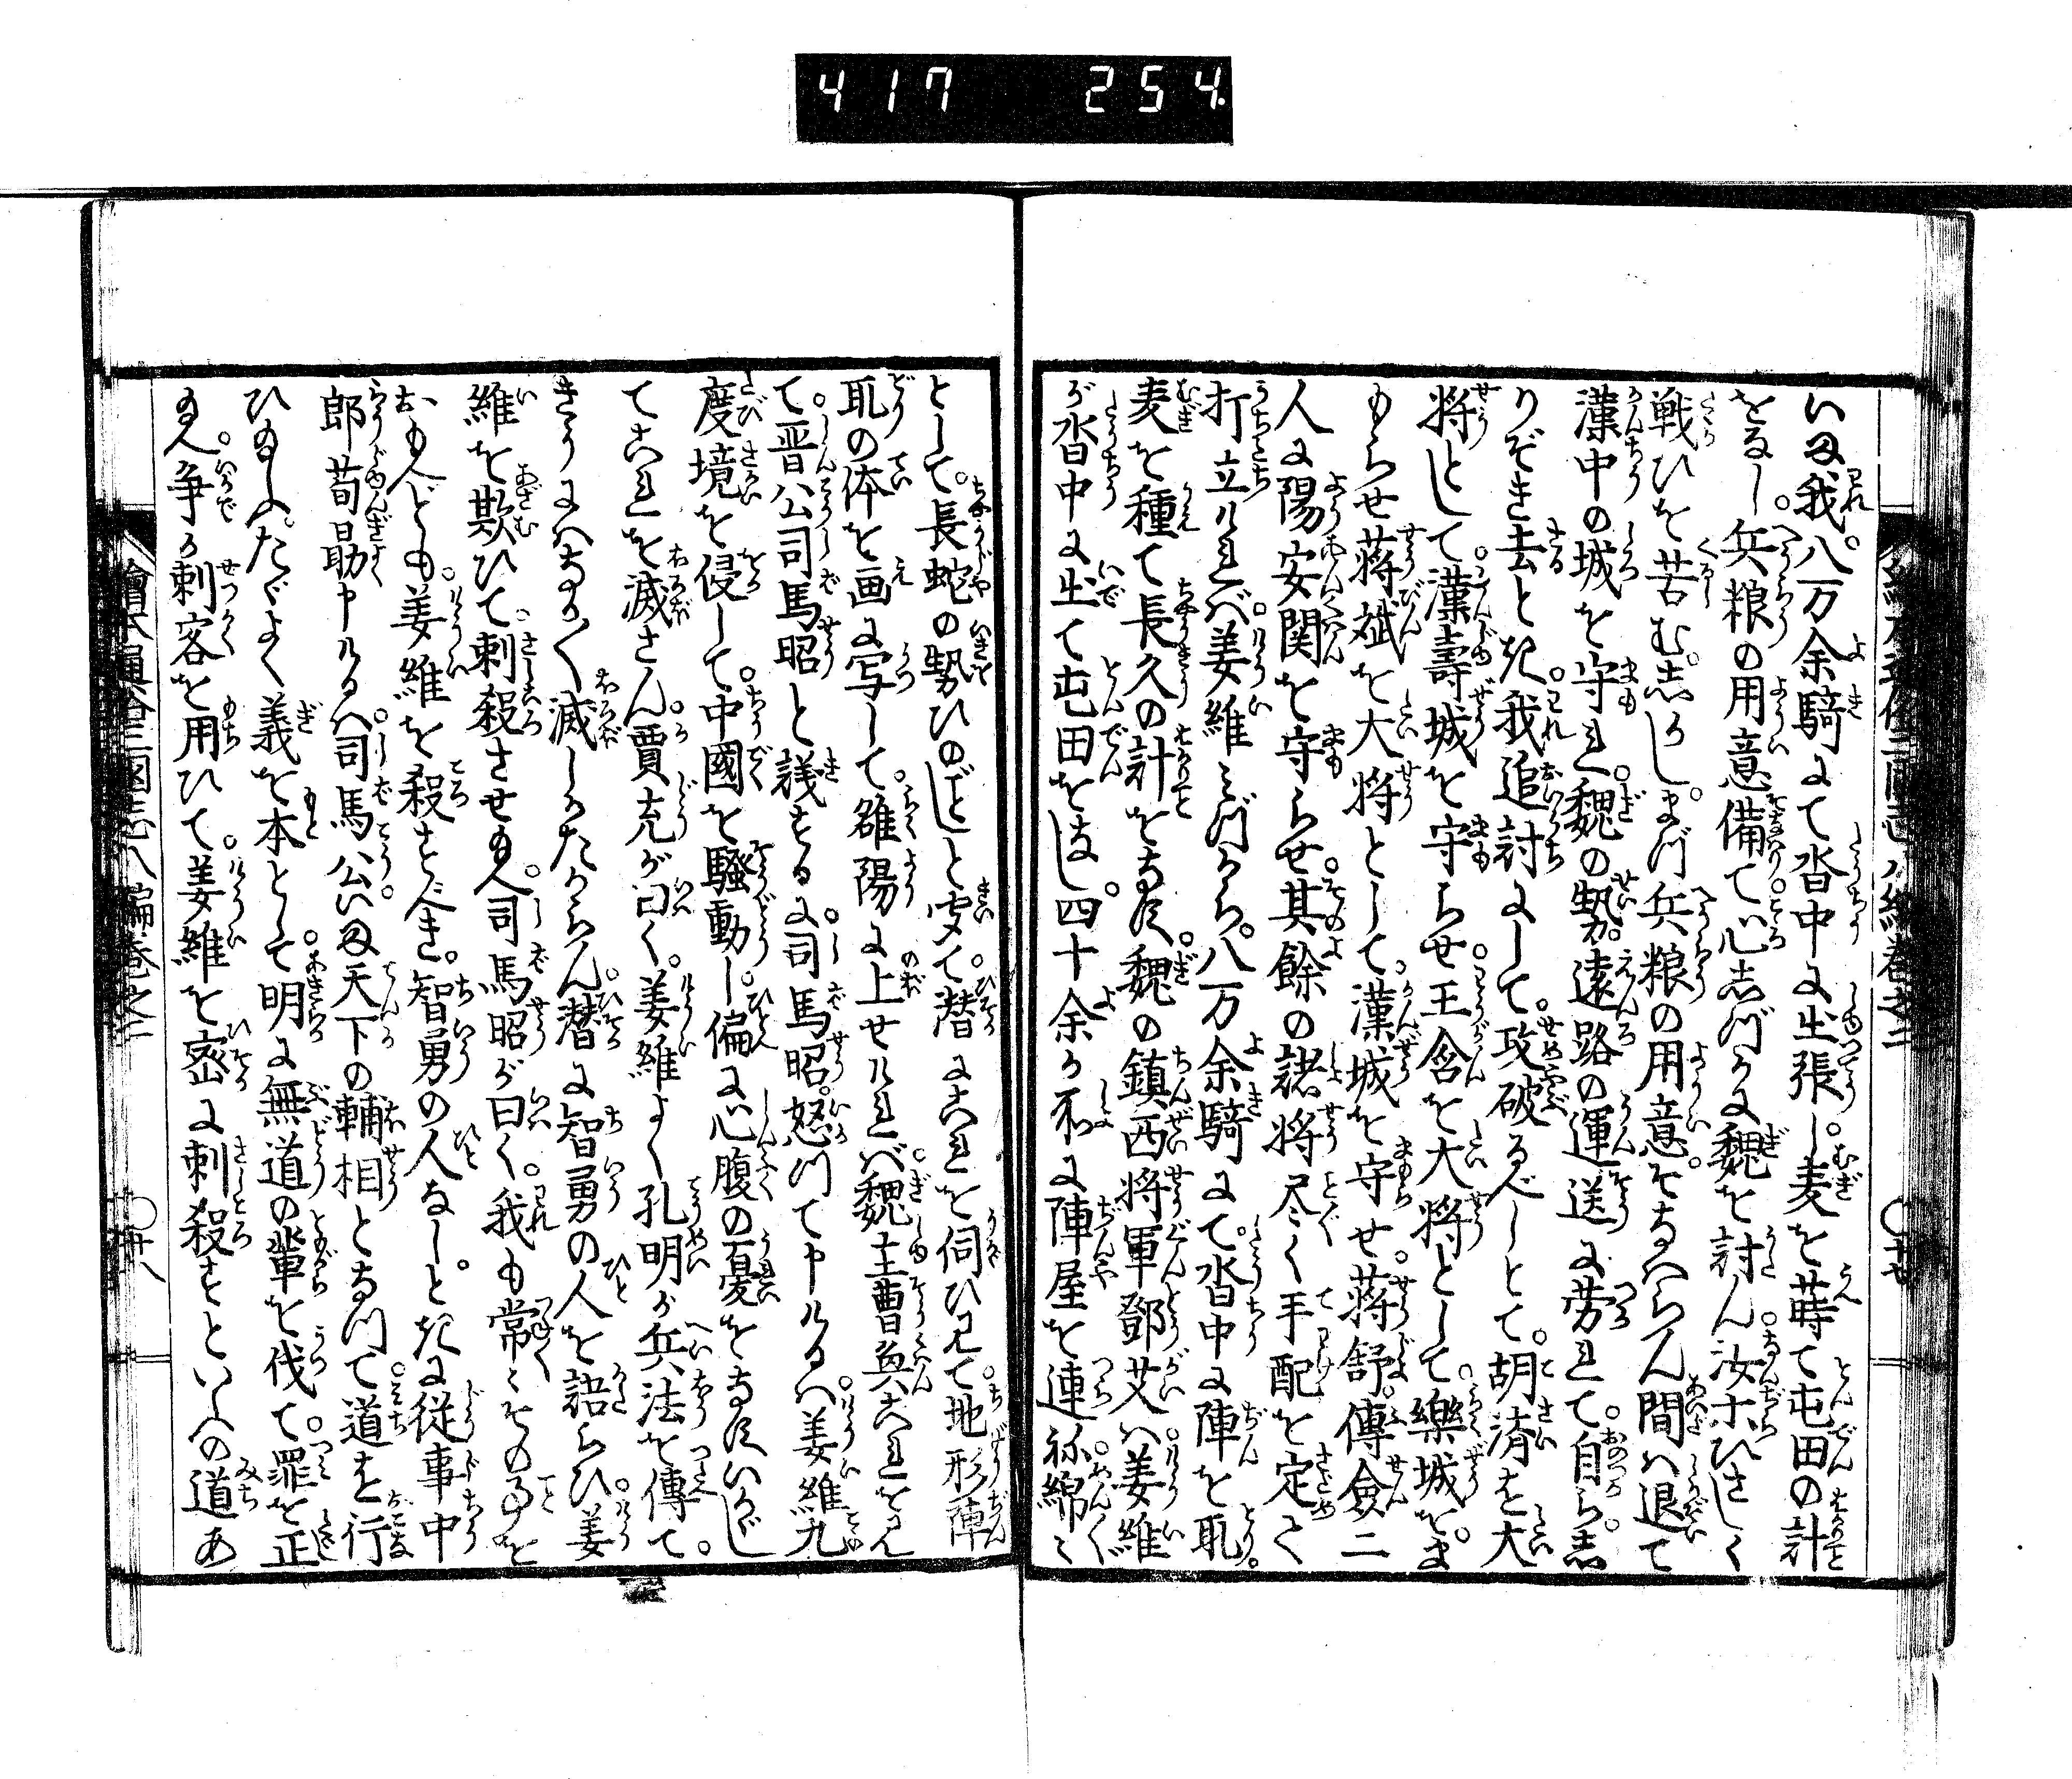 417 254
いま我八万余騎にて沓中に出張し麦を蒔て屯田の計
をなし兵粮の用意備て心志づかに魏を討ん汝等ひさしく
戦ひを苦む志かしまづ兵粮の用意そなへらん間は退て
漢中の城を守れ魏の勢遠路の運送に労れて自ら志
りぞき去とき我追討にして攻破るべしとて胡済を大
将として漢壽城を守らせ王含を大将として樂城をま
もらせ蒋斌を大将として漢城を守せ蒋舒傅僉二
人に陽安関を守らせ其餘の諸将尽く手配を定て
打立ければ姜維みづから八万余騎にて沓中に陣を取
麦を種て長久の計をなす魏の鎮西将軍鄧艾は姜維
が沓中に出て屯田をなし四十余か所に陣屋を連ね綿〻
として長蛇の勢ひのごとと聞て潜にこれを伺ひ見て地形陣
取の体を画に写して雒陽に上せければ魏主曹奐これを見
て晋公司馬昭と議するに司馬昭怒つて申けるは姜維九
度境を侵して中國を騒動し偏に心腹の憂をなすいかゞし
てこれを滅さん賈充が曰く姜維よく孔明が兵法を傳て
きうにはなかく滅しがたからん潜に智勇の人を語らひ姜
維を欺ひて刺殺させ給へ司馬昭が曰く我も常〻その事を
おもへども姜維を殺すべき智勇の人なしときに従事中
郎荀勗申けるは司馬公いま天下の輔相となつて道を行
ひ給ふたゞよく義を本として明に無道の輩を伐て罪を正
給へ争か刺客を用ひて姜維を密に刺殺すといふの道あ
繪本通俗三國志八編巻之二 〇廿八